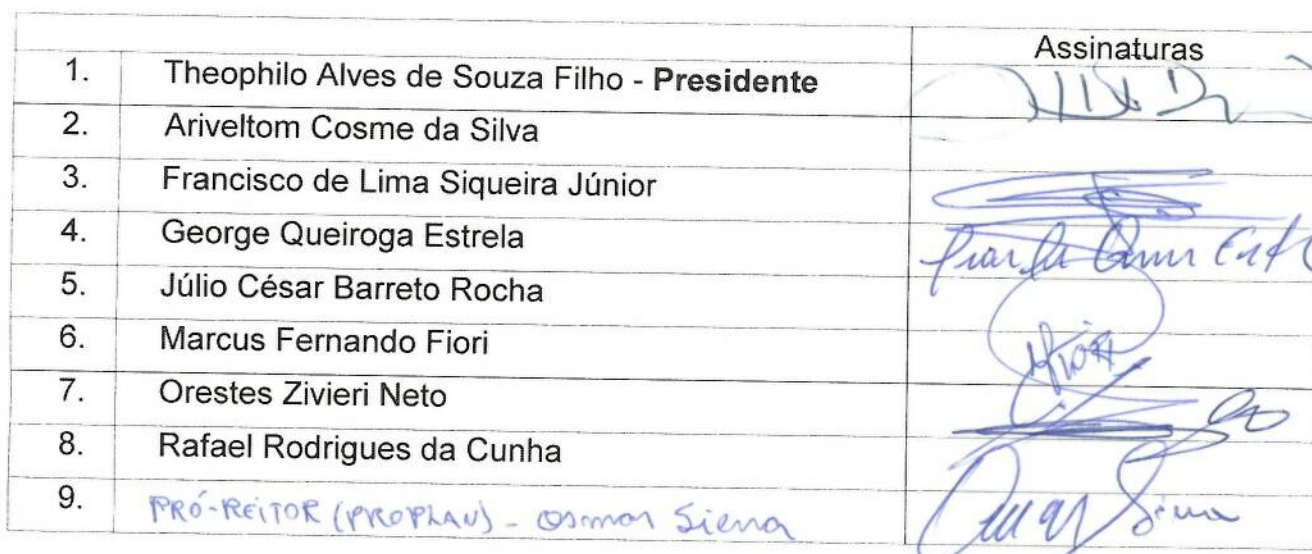 Assinaturas
1. Theophilo Alves de Souza Filho - Presidente
2. Ariveltom Cosme da Silva
3. Francisco de Lima Siqueira Júnior
4. George Queiroga Estrela
5. Júlio César Barreto Rocha
6. Marcus Fernando Fiori
7. Orestes Zivieri Neto
8. Rafael Rodrigues da Cunha
9. PRÓ-REITOR (PROPLAN) - Osmar Siena